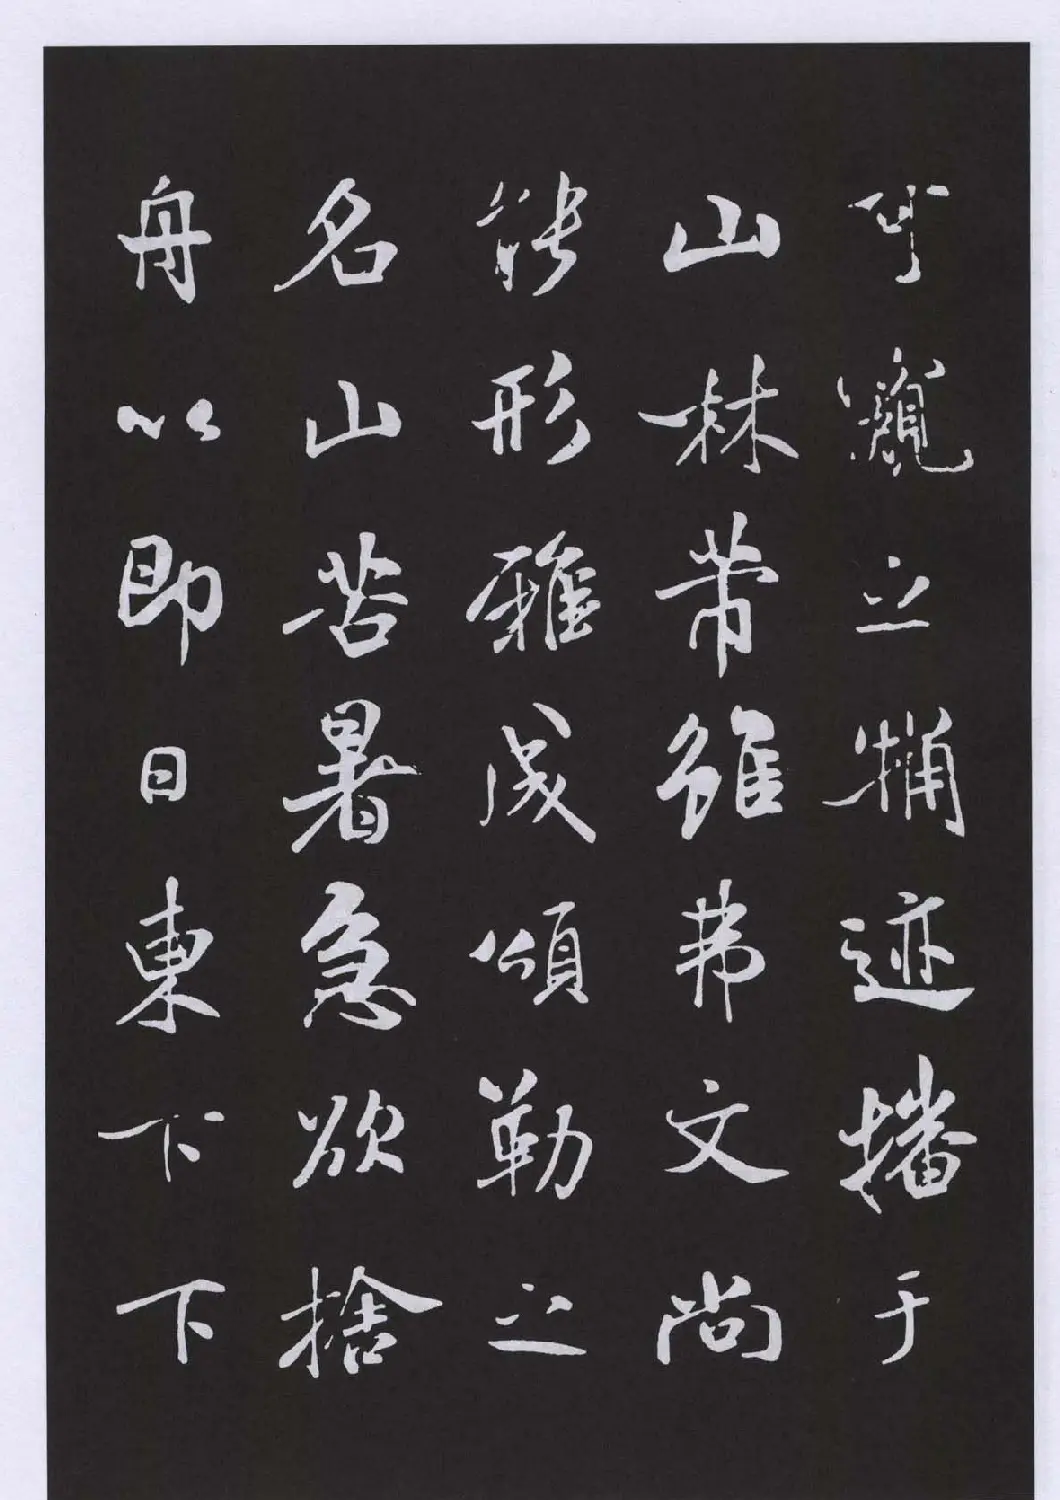 可窺之迹播于
山林芾雖弗文尚
能形雅成頌勒之
名山苦暑急欲捨
舟以即日東下下